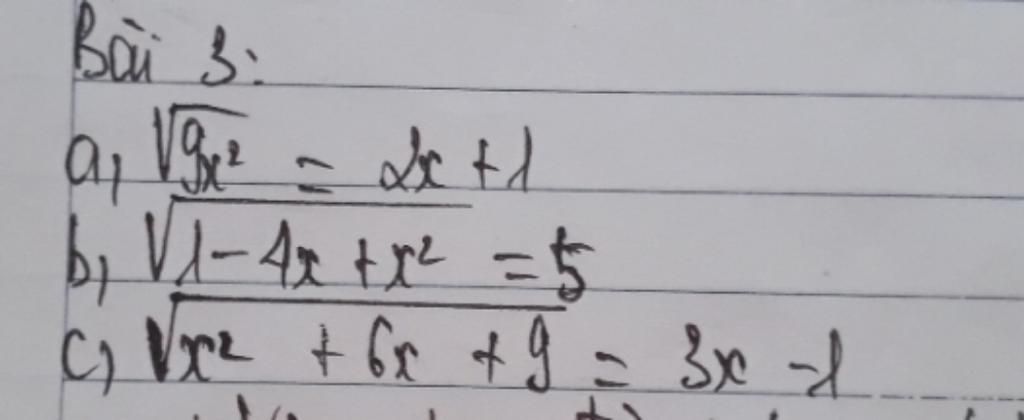 Bài 3:
a, √9x² = 2x + 1
b, √1 - 4x + x² = 5
c, √x² + 6x + 9 = 3x - 1